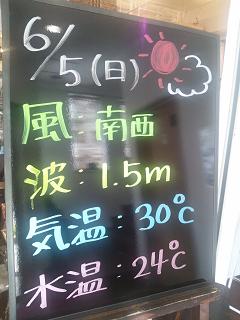 6/5(日)
風:南西
波:1.5m
気温:30℃
水温:24℃